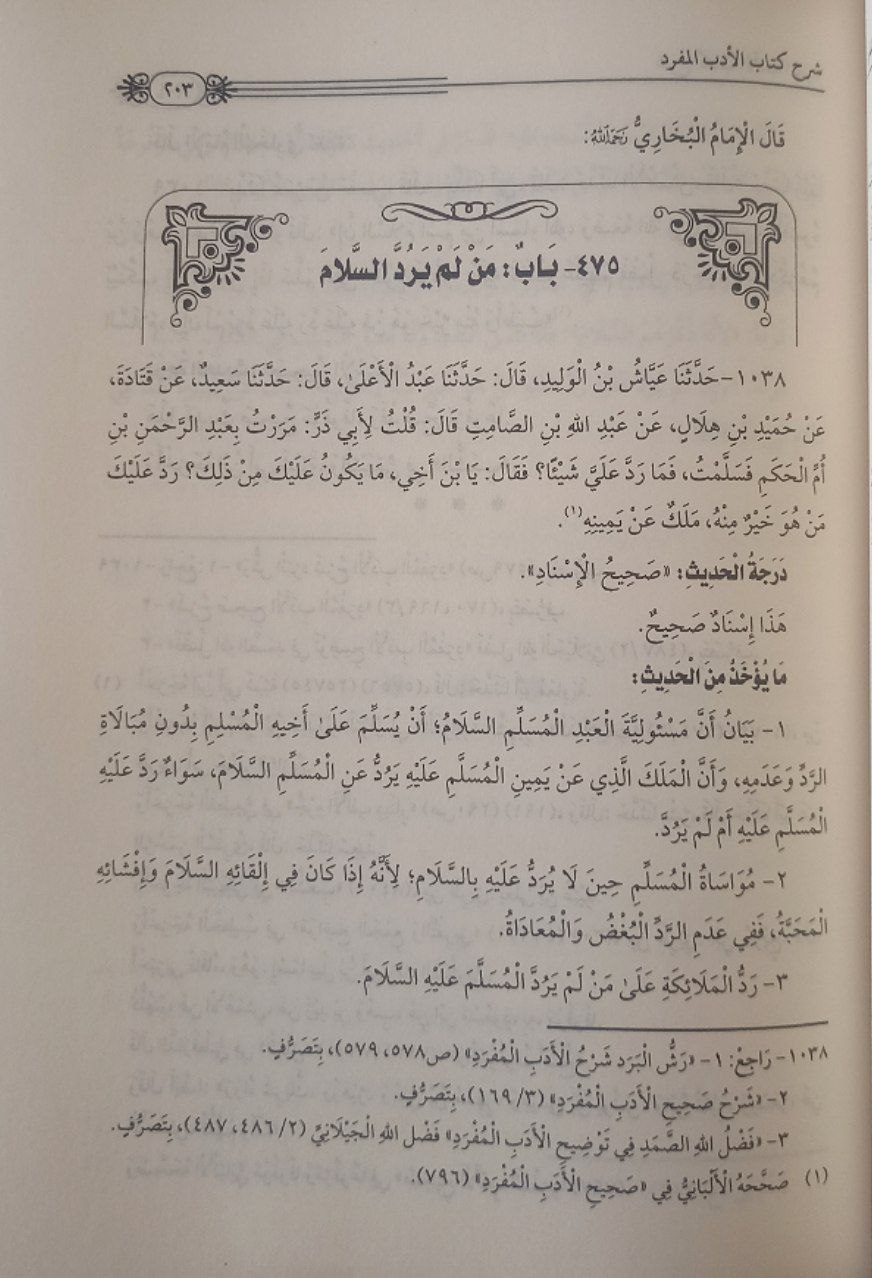 شرح كتاب الأدب المفرد
٢٠٣
قَالَ الْإِمَامُ الْبُخَارِيُّ رَحِمَهُ اللهُ:
٤٧٥- بَابٌ: مَنْ لَمْ يَرُدَّ السَّلَامَ
١٠٣٨- حَدَّثَنَا عَيَّاشُ بْنُ الْوَلِيدِ، قَالَ: حَدَّثَنَا عَبْدُ الْأَعْلَىٰ، قَالَ: حَدَّثَنَا سَعِيدٌ، عَنْ قَتَادَةَ،
عَنْ حُمَيْدِ بْنِ هِلَالٍ، عَنْ عَبْدِ اللهِ بْنِ الصَّامِتِ قَالَ: قُلْتُ لِأَبِي ذَرٍّ: مَرَرْتُ بِعَبْدِ الرَّحْمَنِ بْنِ
أُمِّ الْحَكَمِ فَسَلَّمْتُ، فَمَا رَدَّ عَلَيَّ شَيْئًا؟ فَقَالَ: يَا بْنَ أَخِي، مَا يَكُونُ عَلَيْكَ مِنْ ذَلِكَ؟ رَدَّ عَلَيْكَ
مَنْ هُوَ خَيْرٌ مِنْهُ، مَلَكٌ عَنْ يَمِينِهِ(١).
دَرَجَةُ الْحَدِيثِ: «صَحِيحُ الْإِسْنَادِ».
هَذَا إِسْنَادٌ صَحِيحٌ.
مَا يُؤْخَذُ مِنَ الْحَدِيثِ:
١- بَيَانُ أَنَّ مَسْئُولِيَّةَ الْعَبْدِ الْمُسَلِّمِ السَّلَامُ؛ أَنْ يُسَلِّمَ عَلَىٰ أَخِيهِ الْمُسْلِمِ بِدُونِ مُبَالَاةِ
الرَّدِّ وَعَدَمِهِ، وَأَنَّ الْمَلَكَ الَّذِي عَنْ يَمِينِ الْمُسَلَّمِ عَلَيْهِ يَرُدُّ عَنِ الْمُسَلِّمِ السَّلَامَ، سَوَاءٌ رَدَّ عَلَيْهِ
الْمُسَلَّمِ عَلَيْهِ أَمْ لَمْ يَرُدَّ.
٢- مُوَاسَاةُ الْمُسَلِّمِ حِينَ لَا يُرَدُّ عَلَيْهِ بِالسَّلَامِ؛ لِأَنَّهُ إِذَا كَانَ فِي إِلْقَائِهِ السَّلَامَ وَإِفْشَائِهِ
الْمَحَبَّةُ، فَفِي عَدَمِ الرَّدِّ الْبُغْضُ وَالْمُعَادَاةُ.
٣- رَدُّ الْمَلَائِكَةِ عَلَىٰ مَنْ لَمْ يَرُدَّ الْمُسَلَّمَ عَلَيْهِ السَّلَامَ.
١٠٣٨- رَاجِعْ: ١- «رَشُّ الْبَرَدِ شَرْحُ الْأَدَبِ الْمُفْرَدِ» (ص٥٧٨، ٥٧٩)، بِتَصَرُّفٍ.
٢- «شَرْحُ صَحِيحِ الْأَدَبِ الْمُفْرَدِ» (٣/ ١٦٩)، بِتَصَرُّفٍ.
٣- «فَضْلُ اللهِ الصَّمَدِ فِي تَوْضِيحِ الْأَدَبِ الْمُفْرَدِ» فَضْل اللهِ الْجَيْلَانِيِّ (٢/ ٤٨٦، ٤٨٧)، بِتَصَرُّفٍ.
(١) صَحَّحَهُ الْأَلْبَانِيُّ فِي «صَحِيحِ الْأَدَبِ الْمُفْرَدِ» (٧٩٦).